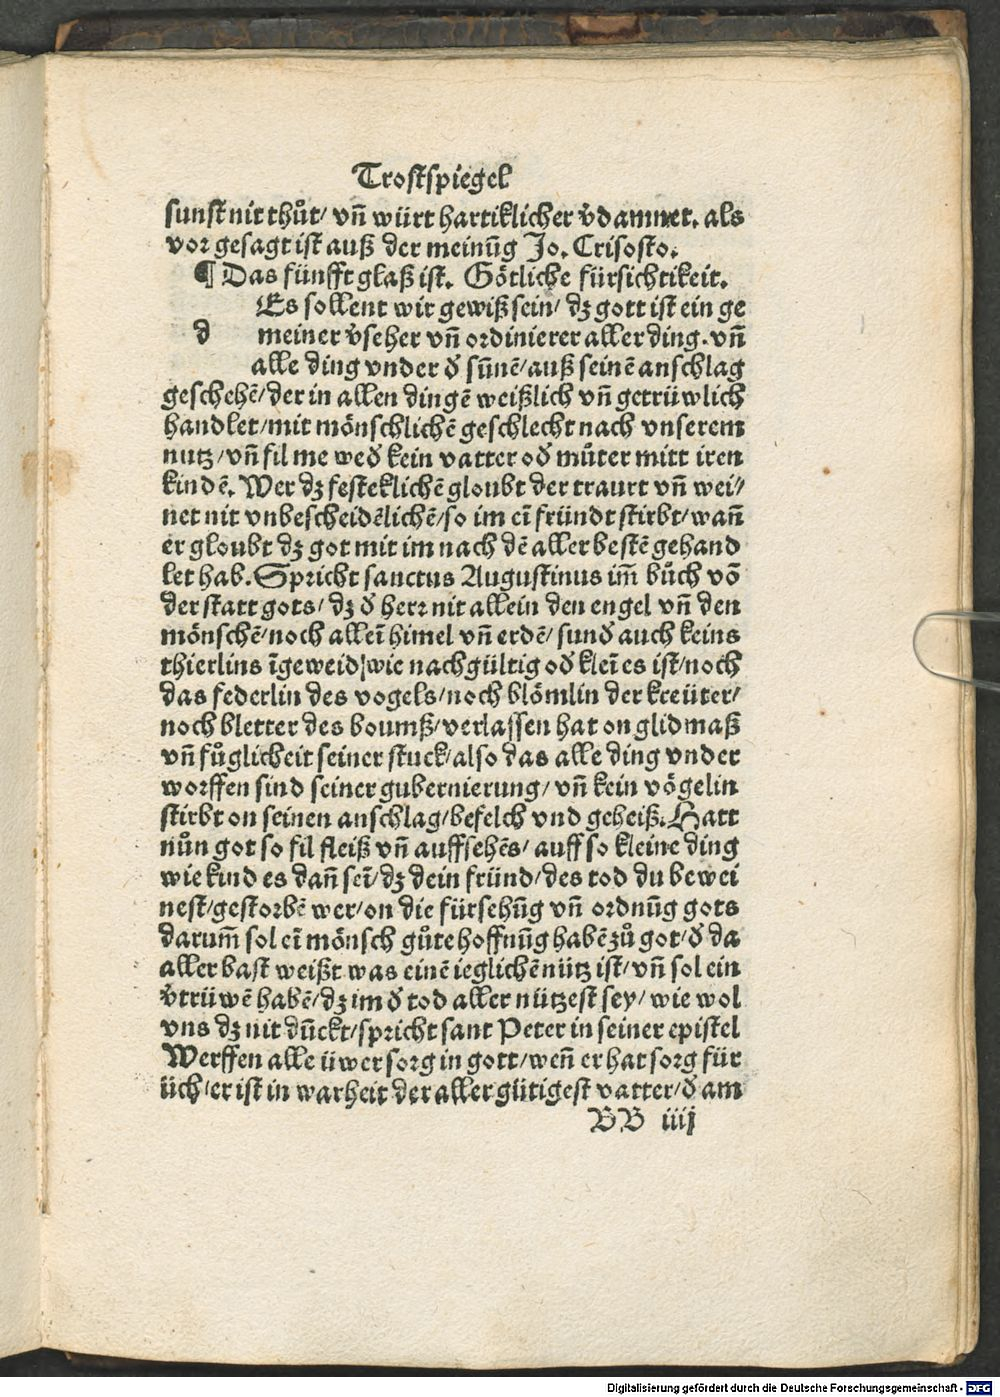 Trostspiegel
sunst nit thůt/ vñ würt hartiklicher v̄damnet. als
vor gesagt ist auß der meinūg Jo. Crisosto.
¶ Das fünfft glaß ist. Götliche fürsichtikeit.
Es sollent wir gewiß sein/ dz gott ist ein ge
d meiner v̄seher vñ ordinierer aller ding. vñ
alle ding vnder d̄ sūnē/ auß seinē anschlag
geschehē/ der in allen dingē weißlich vñ getrüwlich
handlet/ mit mönschlichē geschlecht nach vnserem
nutz/ vñ fil me wed̄ kein vatter od̄ můter mitt iren
kindē. Wer dz festeklichē gloubt der traurt vñ wei/
net nit vnbescheidēlichē/ so im eī fründt stirbt/ wañ
er gloubt dz got mit im nach dē aller bestē gehand
let hab. Spricht sanctus Augustinus im̄ bůch vō
der statt gots/ dz d̄ herr nit allein den engel vñ den
mönschē/ noch alleī himel vñ erdē/ sund̄ auch keins
thierlins īgeweid/ wie nachgültig od̄ kleī es ist/ noch
das federlin des vogels/ noch blömlin der kreüter/
noch bletter des boumß/ verlassen hat on glidmaß
vñ fůglicheit seiner stuck/ also das alle ding vnder
worffen sind seiner gubernierung/ vñ kein vögelin
stirbt on seinen anschlag/ befelch vnd geheiß. Hatt
nůn got so fil fleiß vñ auffsehēs/ auff so kleine ding
wie kind es dañ seī/ dz dein fründ/ des tod du bewei
nest/ gestorbē wer/ on die fürsehūg vñ ordnūg gots
darum̄ sol eī mönsch gůte hoffnūg habē zů got/ d̄ da
aller bast weißt was einē ieglichē nütz ist/ vñ sol ein
v̄trüwē habē/ dz im d̄ tod aller nützest sey/ wie wol
vns dz nit dūckt/ spricht sant Peter in seiner epistel
Werffen alle üwer sorg in gott/ weñ er hat sorg für
üch/ er ist in warheit der aller gütigest vatter/ d̄ am
BB iiij
Digitalisierung gefördert durch die Deutsche Forschungsgemeinschaft - DFG